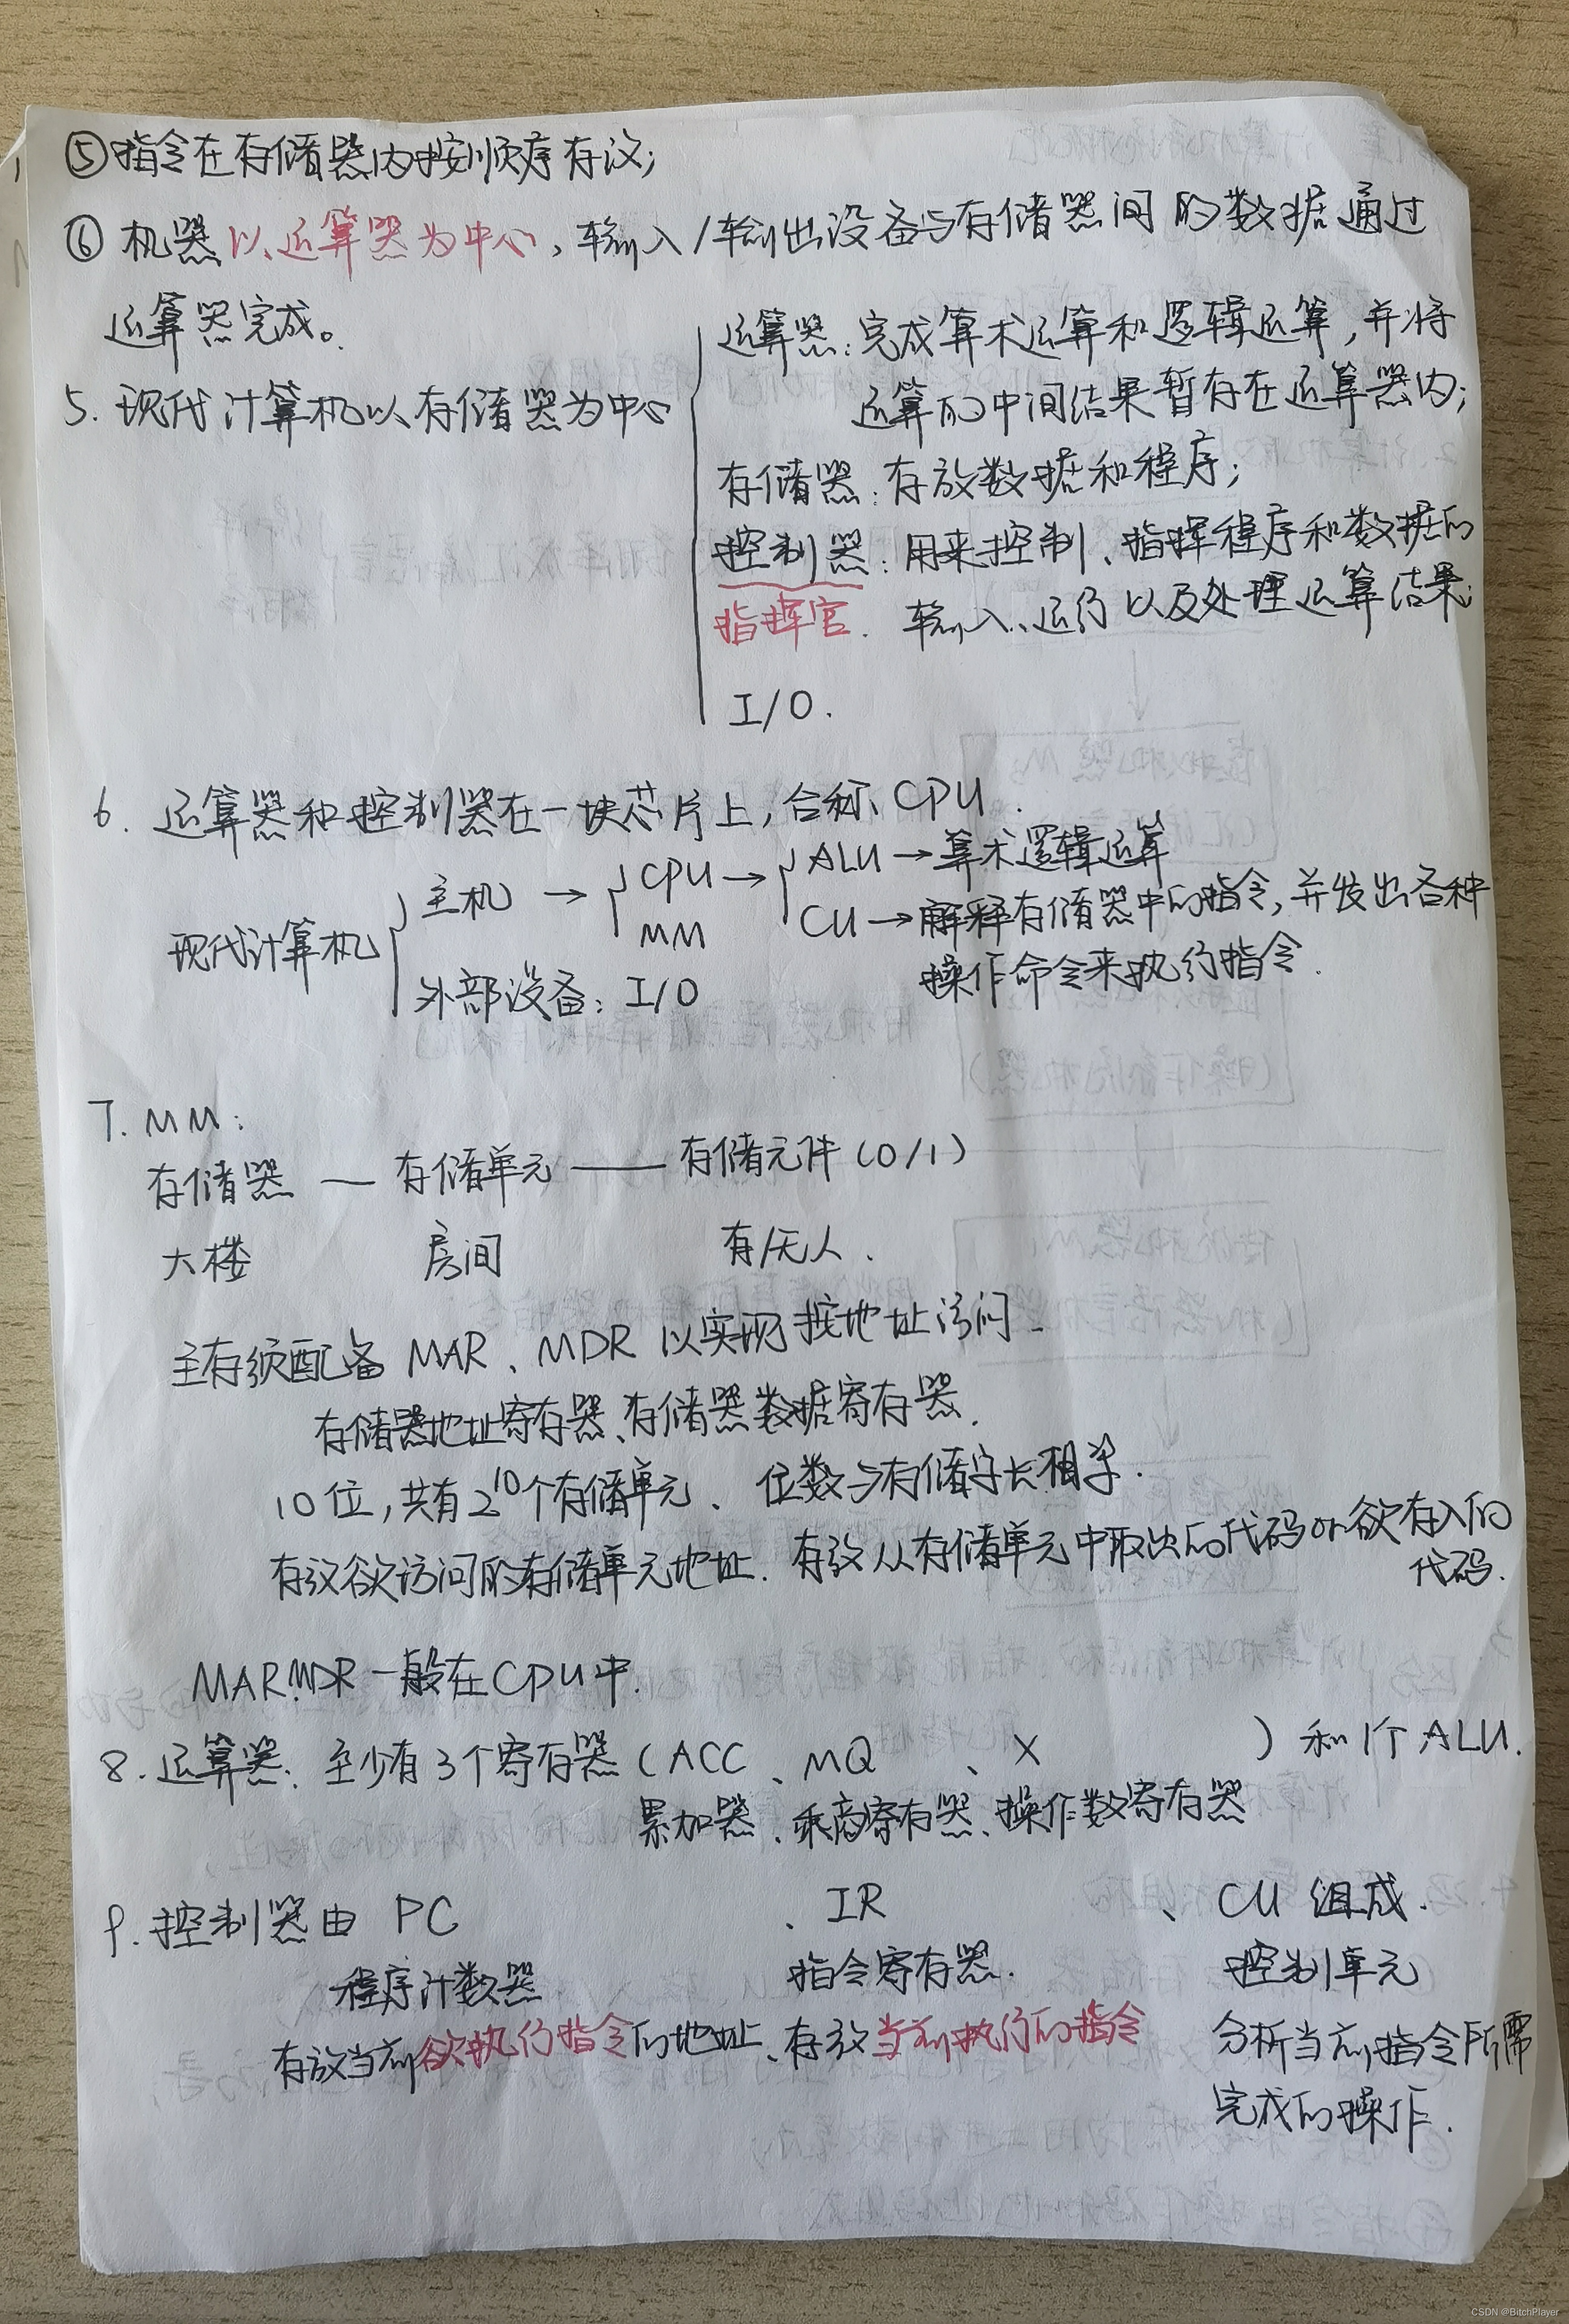 ⑤指令在存储器内按顺序存放;
⑥ 机器以运算器为中心,输入/输出设备与存储器间的数据通过
运算器完成。
5. 现代计算机以存储器为中心
运算器:完成算术运算和逻辑运算,并将
运算的中间结果暂存在运算器内;
存储器:存放数据和程序;
控制器:用来控制、指挥程序和数据的
指挥官. 输入、运行以及处理运算结果;
I/O.
6. 运算器和控制器在一块芯片上,合称、CPU.
现代计算机
主机 → CPU → ALU → 算术逻辑运算
MM CU → 解释存储器中的指令,并发出各种
操作命令来执行指令.
外部设备: I/O
7. MM:
存储器 — 存储单元 —— 存储元件(0/1)
大楼 房间 有/无人.
主存须配备 MAR、MDR 以实现按地址访问.
存储器地址寄存器、存储器数据寄存器.
10位,共有2^10个存储单元、 位数与存储字长相等.
存放欲访问的存储单元地址. 存放从存储单元中取出的代码or欲存入的
代码.
MAR、MDR一般在CPU中.
8. 运算器:至少有3个寄存器(ACC、MQ、X)和1个ALU.
累加器、乘商寄存器、操作数寄存器
9. 控制器由 PC 、IR 、CU 组成.
程序计数器 指令寄存器. 控制单元
存放当前欲执行指令的地址、存放当前执行的指令 分析当前指令所需
完成的操作.
CSDN @BitchPlayer